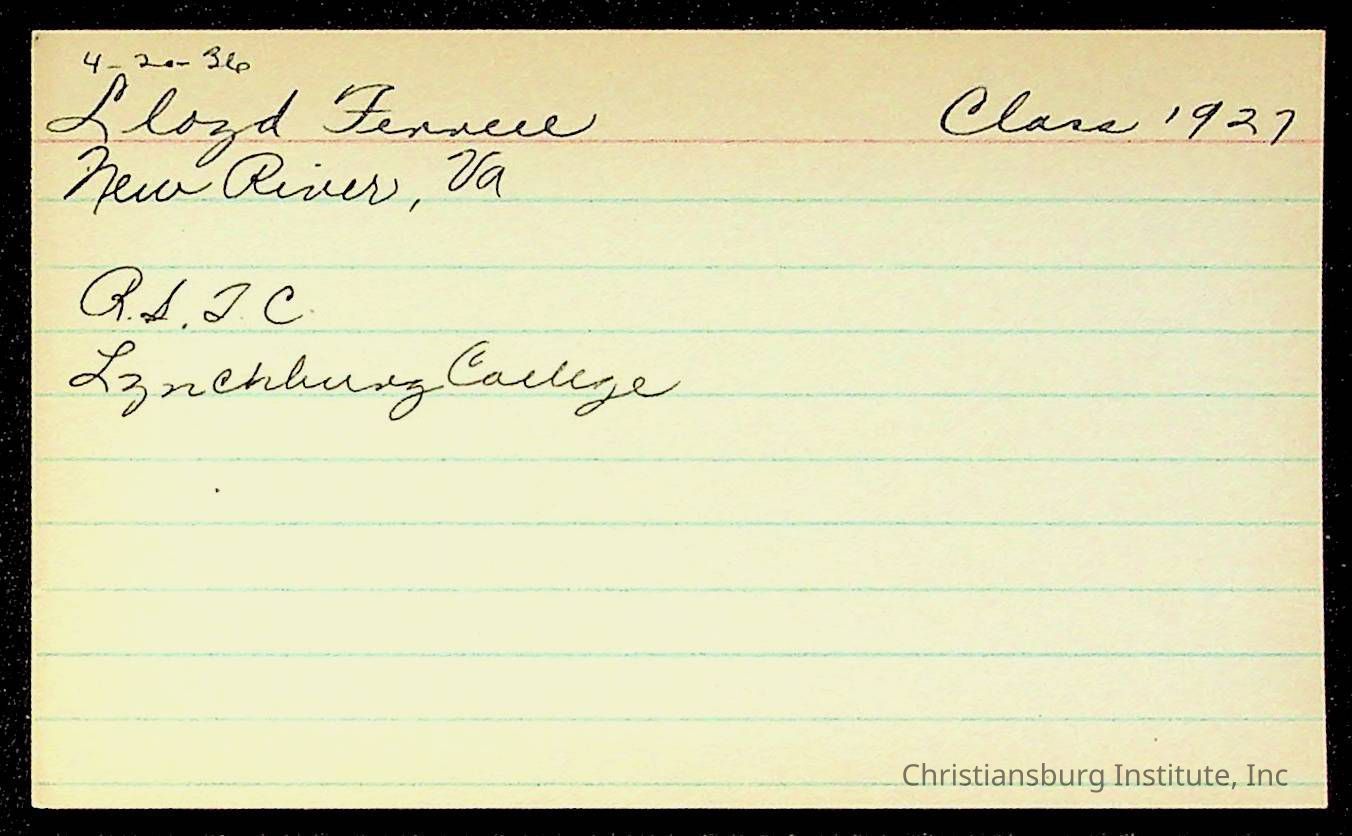 4-20-36
Lloyd Ferrell Class 1927
New River, Va
R.S.T.C.
Lynchburg College
Christiansburg Institute, Inc